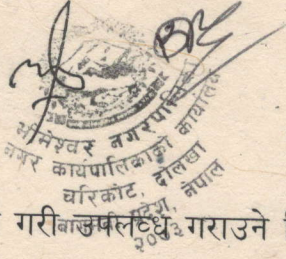 भीमेश्वर नगरपालिका
नगर कार्यपालिकाको कार्यालय
चरिकोट, दोलखा
प्रदेश, नेपाल
२०७३
गरी उपलब्ध गराउने